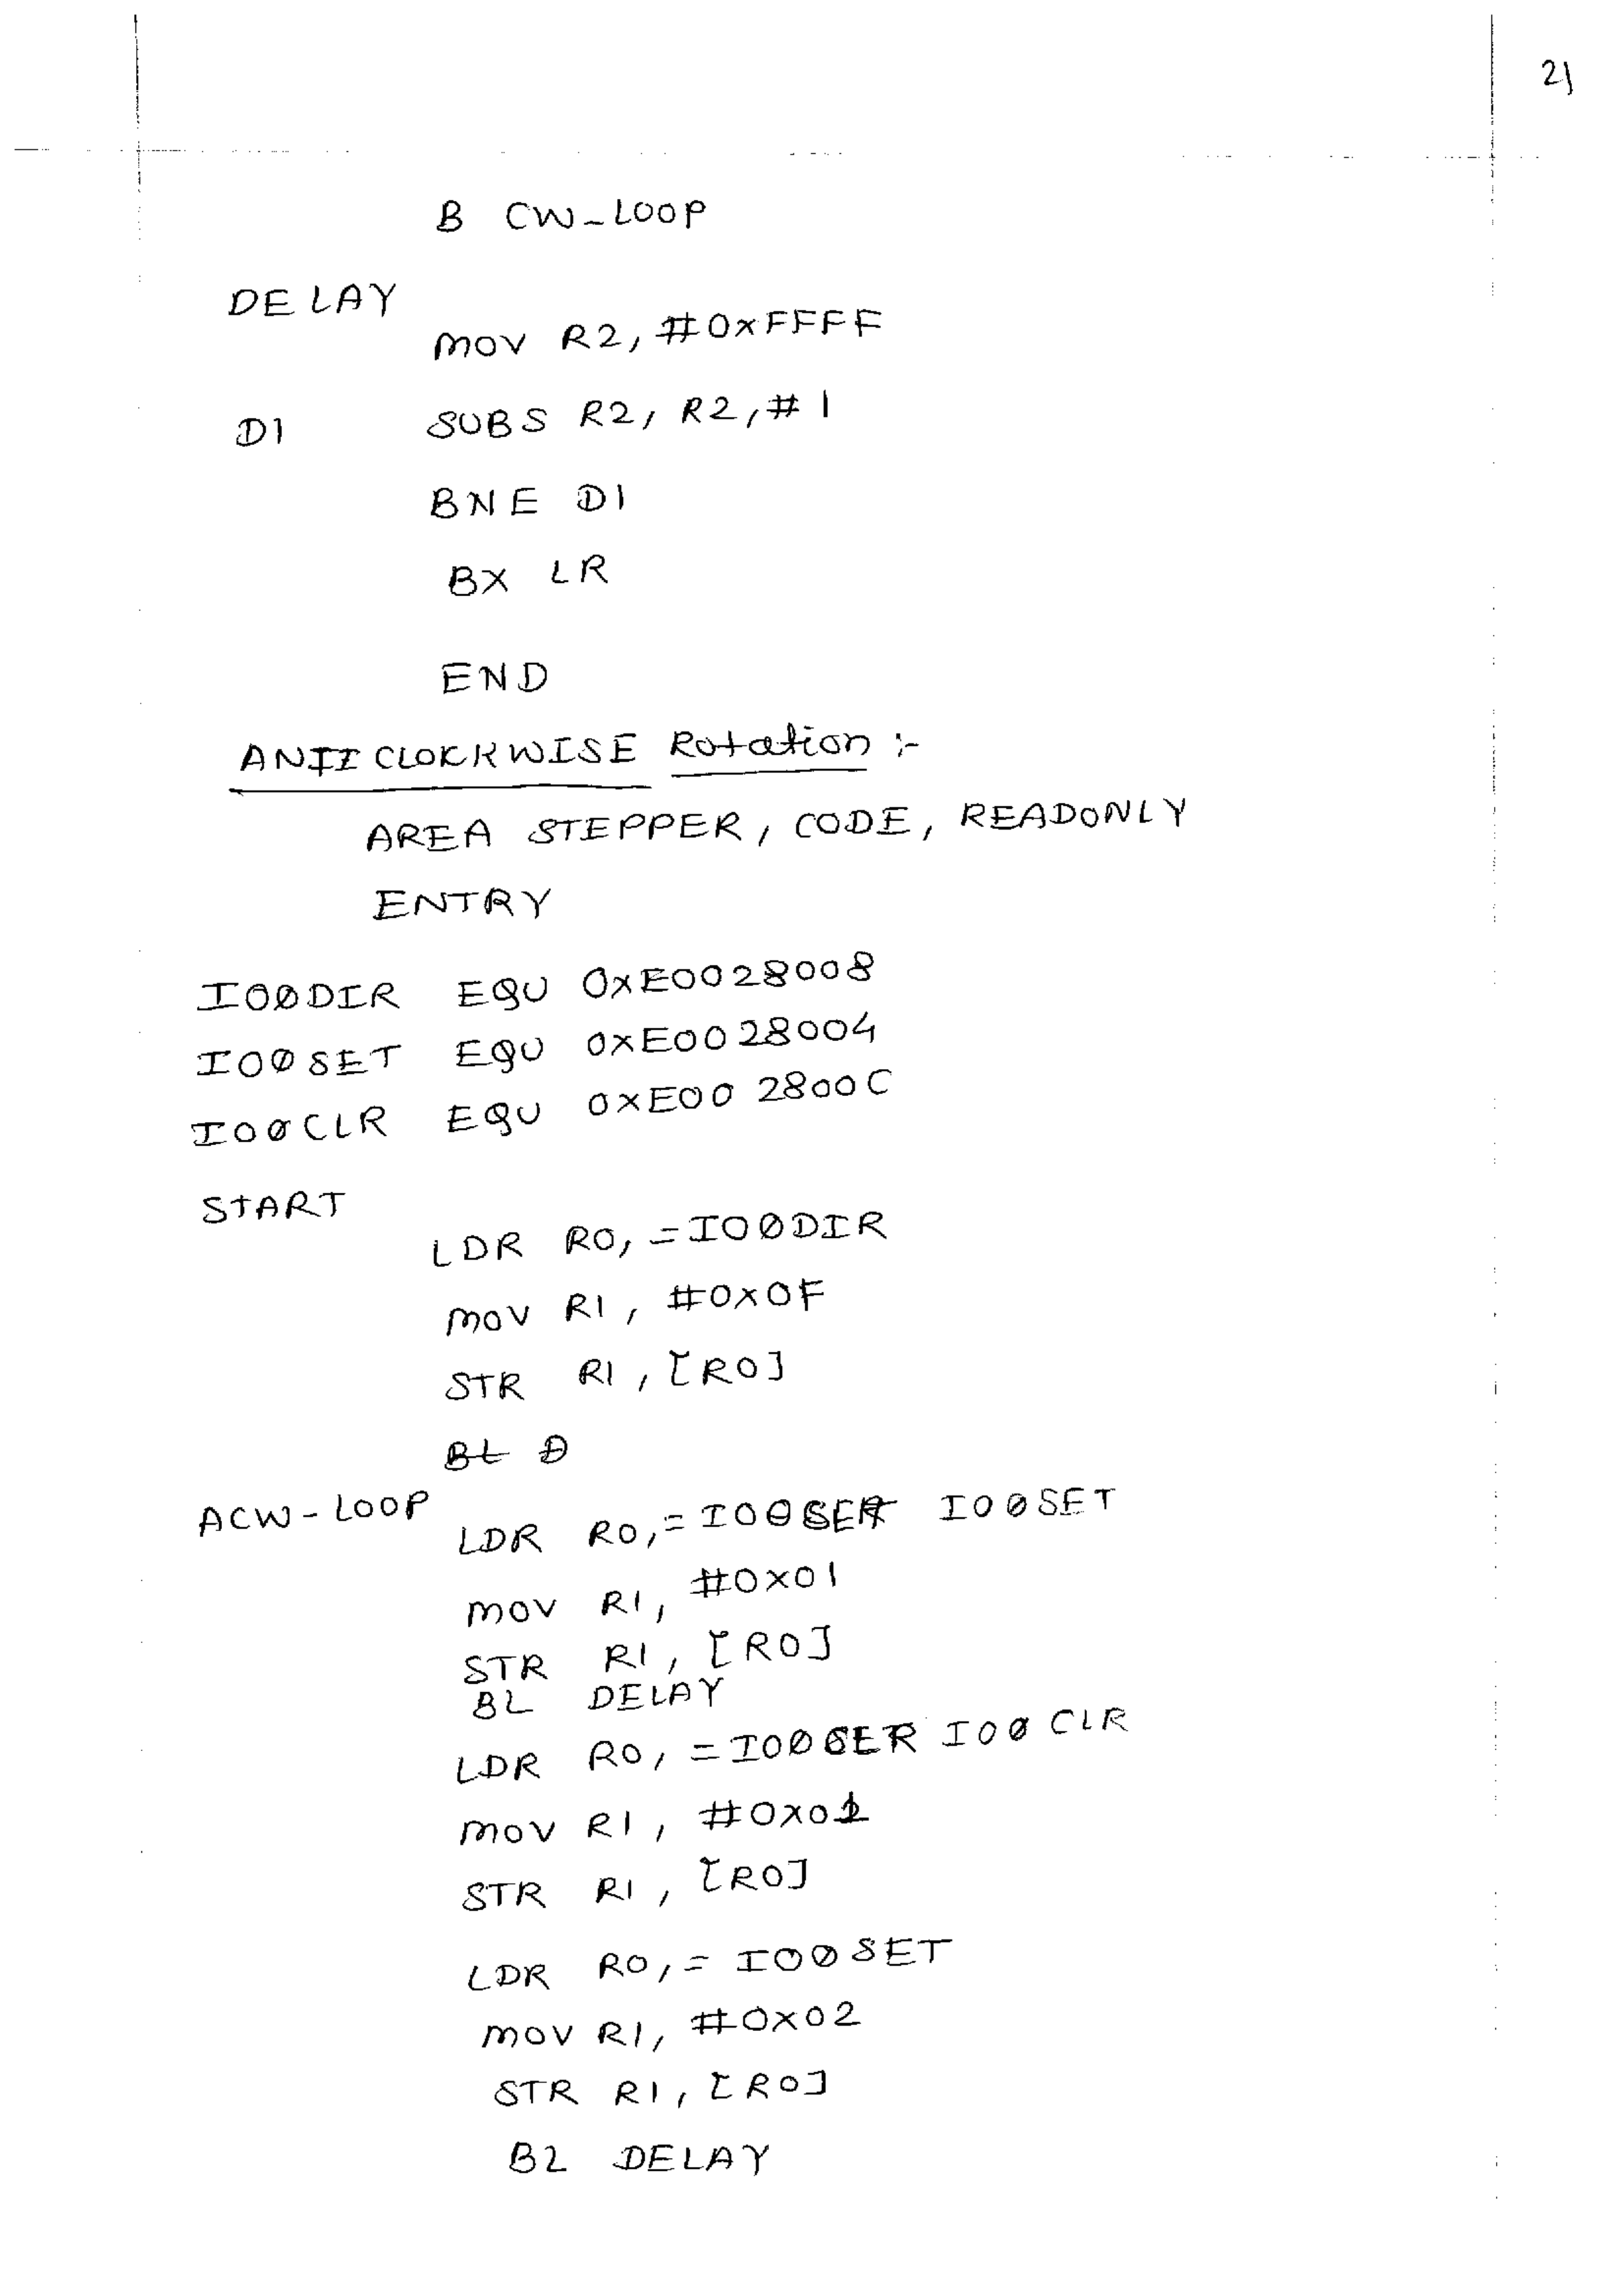 21
B CW_LOOP
DELAY
MOV R2, #0xFFFF
D1 SUBS R2, R2, #1
BNE D1
BX LR
END
ANTICLOCKWISE Rotation :-
AREA STEPPER, CODE, READONLY
ENTRY
IO0DIR EQU 0xE0028008
IO0SET EQU 0xE0028004
IO0CLR EQU 0xE002800C
START
LDR R0, =IO0DIR
MOV R1, #0x0F
STR R1, [R0]
BL D
ACW-LOOP
LDR R0,= IO0SET
MOV R1, #0x01
STR R1, [R0]
BL DELAY
LDR R0, = IO0CLR
MOV R1, #0x01
STR R1, [R0]
LDR R0,= IO0SET
MOV R1, #0x02
STR R1, [R0]
BL DELAY